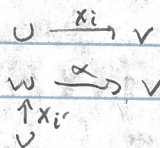 U —xᵢ→ V
W —α→ V
↑ xᵢ′
U